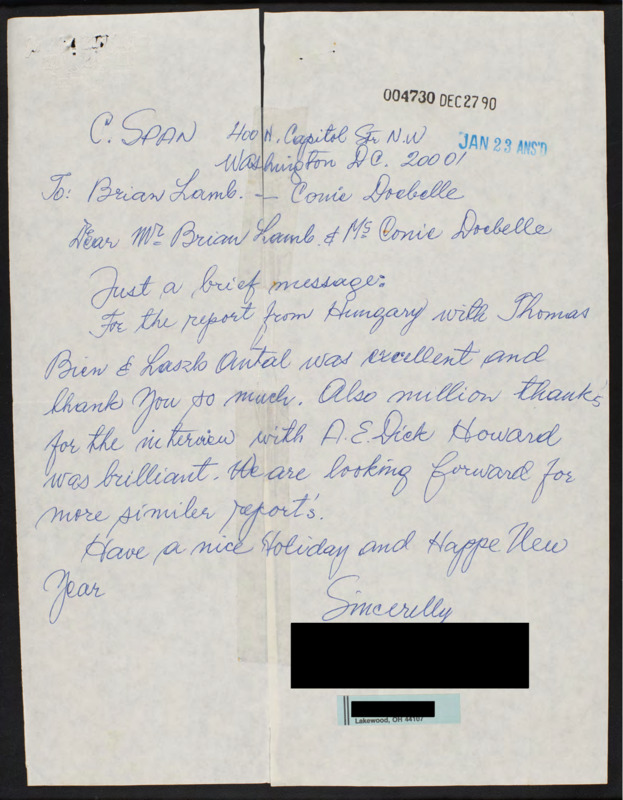 004730 DEC 27 90
JAN 23 ANS'D
C. SPAN 400 N. Capitol Str N.W
Washington D.C. 20001
To: Brian Lamb. — Conie Doebelle
Dear Mr Brian Lamb & Ms Conie Doebelle
Just a brief message:
For the report from Hungary with Thomas
Bien & Laszlo Antal was excellent and
thank You so much. Also million thank's
for the interview with A.E. Dick Howard
was brilliant. We are looking forward for
more similer report's.
Have a nice Holiday and Happe New
Year
Sincerelly
Lakewood, OH 44107